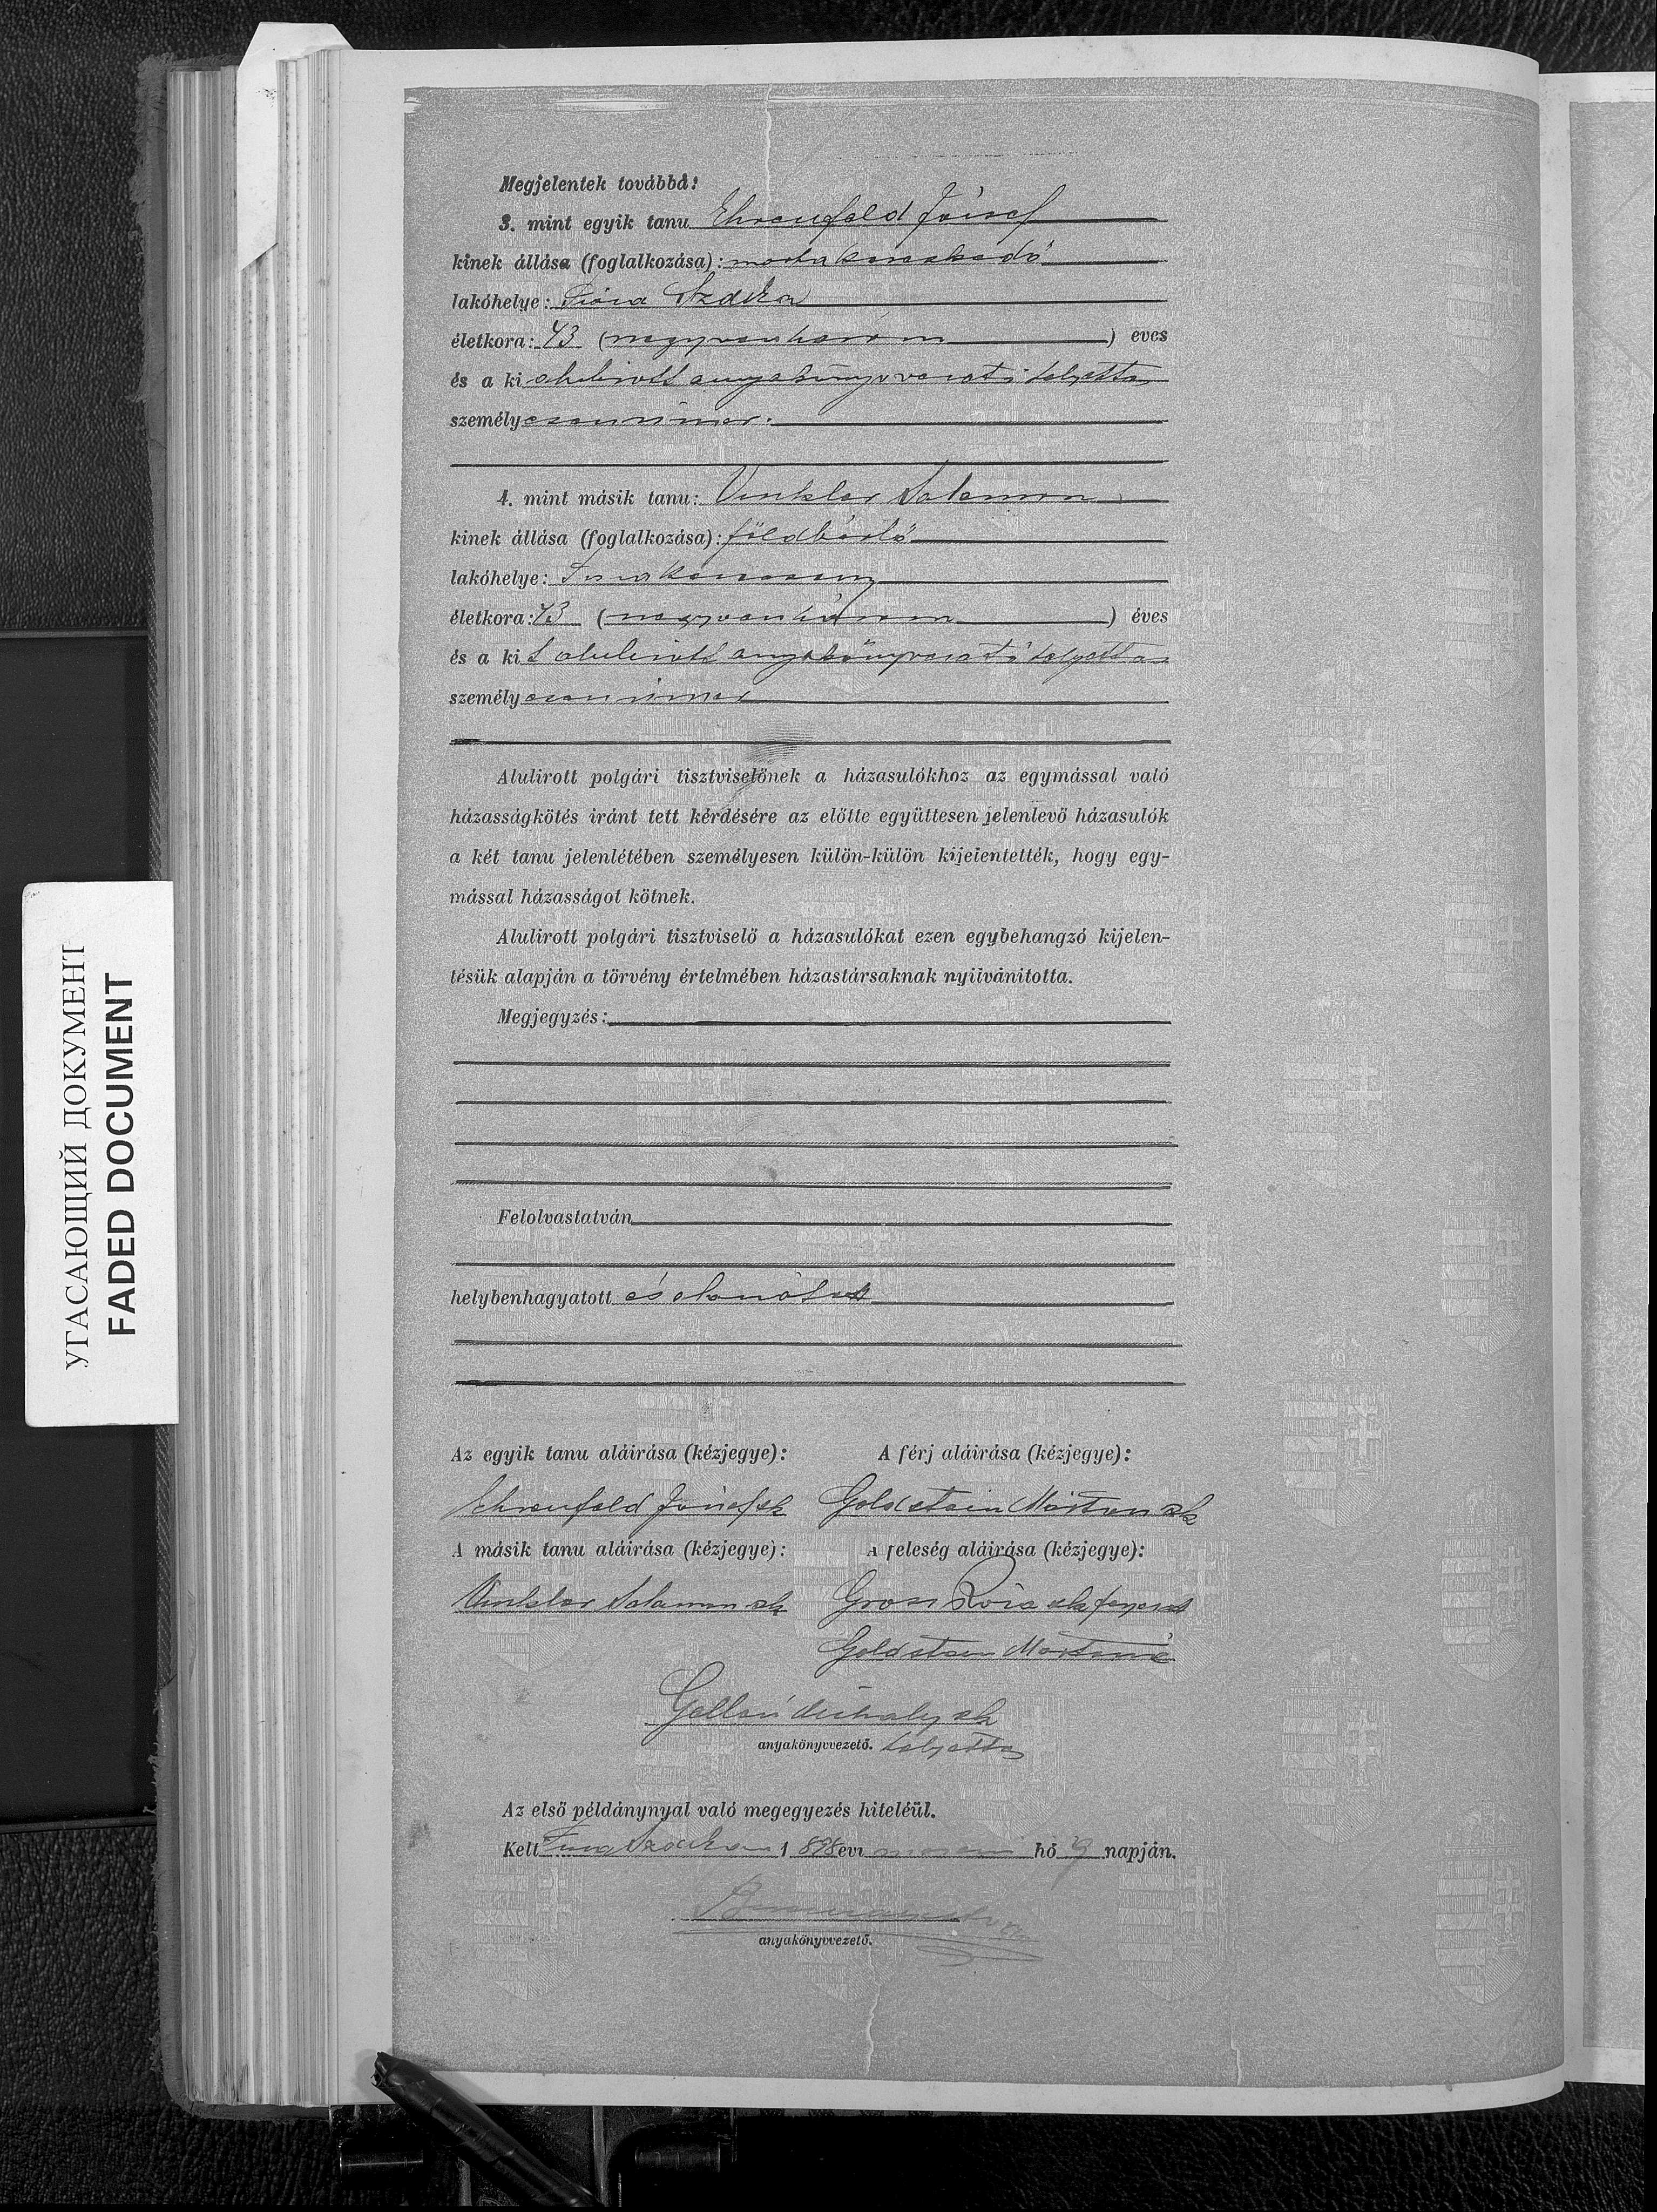 Megjelentek továbbá:
3. mint egyik tanu Ehrenfeld József
kinek állása (foglalkozása):
lakóhelye: Szászka
életkora: 43 (negyvenhárom) éves
és a ki alulirott anyakönyvvezető helyettes
személyesen ismer.
4. mint másik tanu: Vinkler Salamon
kinek állása (foglalkozása): földbérlő
lakóhelye:
életkora: 43 (negyvenhárom) éves
és a kit alulirott anyakönyvvezető helyettes
személyesen ismer
Alulirott polgári tisztviselőnek a házasulókhoz az egymással való
házasságkötés iránt tett kérdésére az előtte együttesen jelenlevő házasulók
a két tanu jelenlétében személyesen külön-külön kijelentették, hogy egy-
mással házasságot kötnek.
Alulirott polgári tisztviselő a házasulókat ezen egybehangzó kijelen-
tésük alapján a törvény értelmében házastársaknak nyilvánitotta.
Megjegyzés:
Felolvastatván
helybenhagyatott és aláiratott
Az egyik tanu aláirása (kézjegye): A férj aláirása (kézjegye):
Ehrenfeld József sk Goldstein Márton sk
A másik tanu aláirása (kézjegye): A feleség aláirása (kézjegye):
Vinkler Salamon sk Grosz Róza sk
Goldstein Mártonné
Gellén Mihály sk
anyakönyvvezető. helyettes
Az első példánynyal való megegyezés hiteléül.
Kelt 1898 evi hó 9 napján.
anyakönyvvezető.
УГАСАЮЩИЙ ДОКУМЕНТ
FADED DOCUMENT